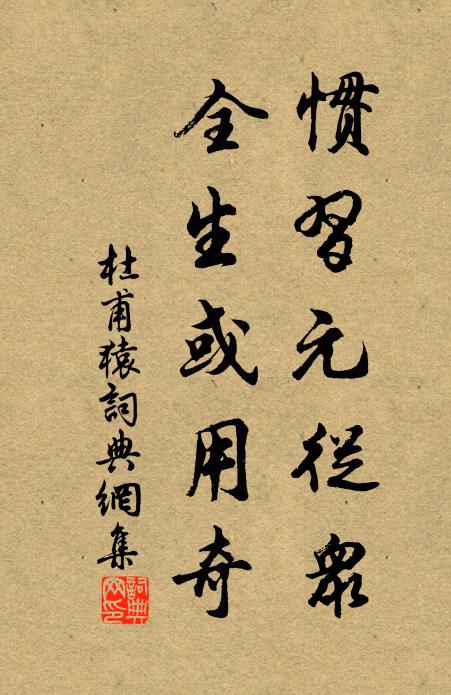 慣習元從衆
全生或用奇
杜甫猿詞典網集
詞典网印